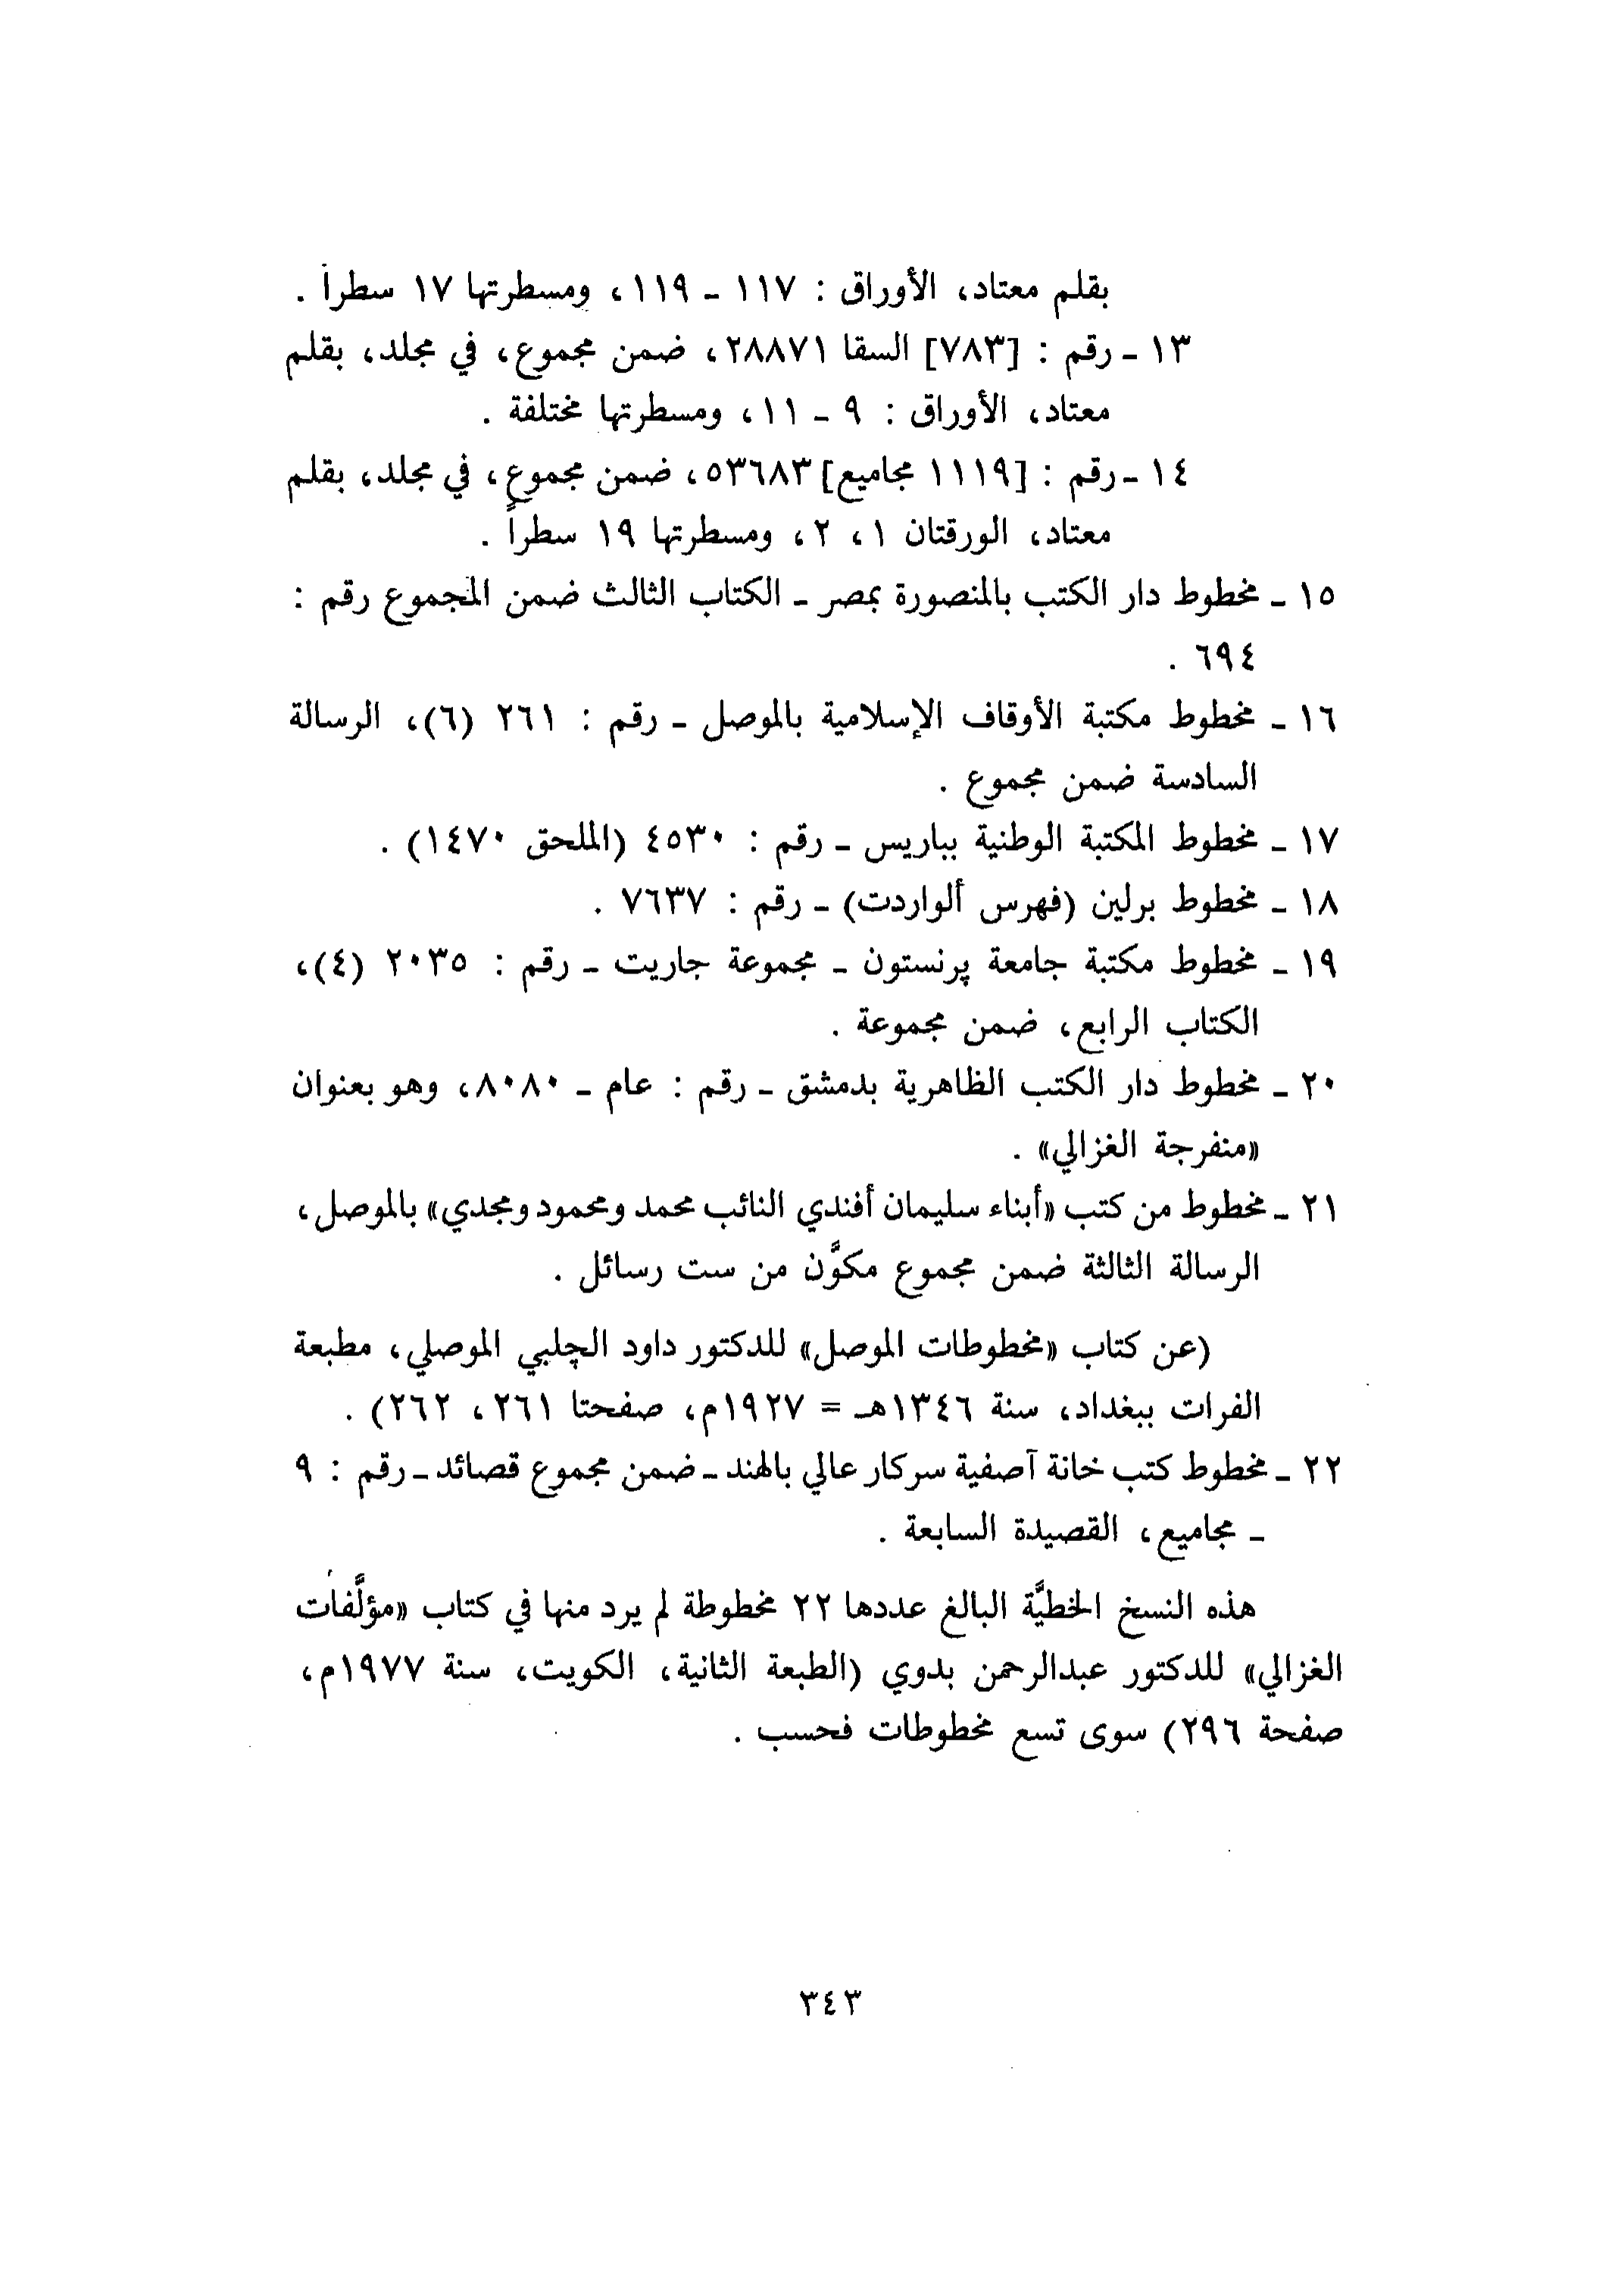 بقلم معتاد، الأوراق : ١١٧ ـ ١١٩، ومسطرتها ١٧ سطراً .
١٣ ـ رقم : [٧٨٣] السقا ٢٨٨٧١، ضمن مجموع، في مجلد، بقلم
معتاد، الأوراق : ٩ ـ ١١، ومسطرتها مختلفة .
١٤ ـ رقم : [١١١٩ مجاميع] ٥٣٦٨٣، ضمن مجموع، في مجلد، بقلم
معتاد، الورقتان ١، ٢، ومسطرتها ١٩ سطراً .
١٥ ـ مخطوط دار الكتب بالمنصورة بمصر ـ الكتاب الثالث ضمن المجموع رقم :
٦٩٤ .
١٦ ـ مخطوط مكتبة الأوقاف الإسلامية بالموصل ـ رقم : ٢٦١ (٦)، الرسالة
السادسة ضمن مجموع .
١٧ ـ مخطوط المكتبة الوطنية بباريس ـ رقم : ٤٥٣٠ (الملحق ١٤٧٠) .
١٨ ـ مخطوط برلين (فهرس ألواردت) ـ رقم : ٧٦٣٧ .
١٩ ـ مخطوط مكتبة جامعة پرنستون ـ مجموعة جاريت ـ رقم : ٢٠٣٥ (٤)،
الكتاب الرابع، ضمن مجموعة .
٢٠ ـ مخطوط دار الكتب الظاهرية بدمشق ـ رقم : عام ـ ٨٠٨٠، وهو بعنوان
«منفرجة الغزالي» .
٢١ ـ مخطوط من كتب «أبناء سليمان أفندي النائب محمد ومحمود ومجدي» بالموصل،
الرسالة الثالثة ضمن مجموع مكوَّن من ست رسائل .
(عن كتاب «مخطوطات الموصل» للدكتور داود الچلبي الموصلي، مطبعة
الفرات ببغداد، سنة ١٣٤٦هـ = ١٩٢٧م، صفحتا ٢٦١، ٢٦٢) .
٢٢ ـ مخطوط كتب خانة آصفية سركار عالي بالهند ـ ضمن مجموع قصائد ـ رقم : ٩
ـ مجاميع، القصيدة السابعة .
هذه النسخ الخطيَّة البالغ عددها ٢٢ مخطوطة لم يرد منها في كتاب «مؤلَّفات
الغزالي» للدكتور عبدالرحمن بدوي (الطبعة الثانية، الكويت، سنة ١٩٧٧م،
صفحة ٢٩٦) سوى تسع مخطوطات فحسب .
٣٤٣